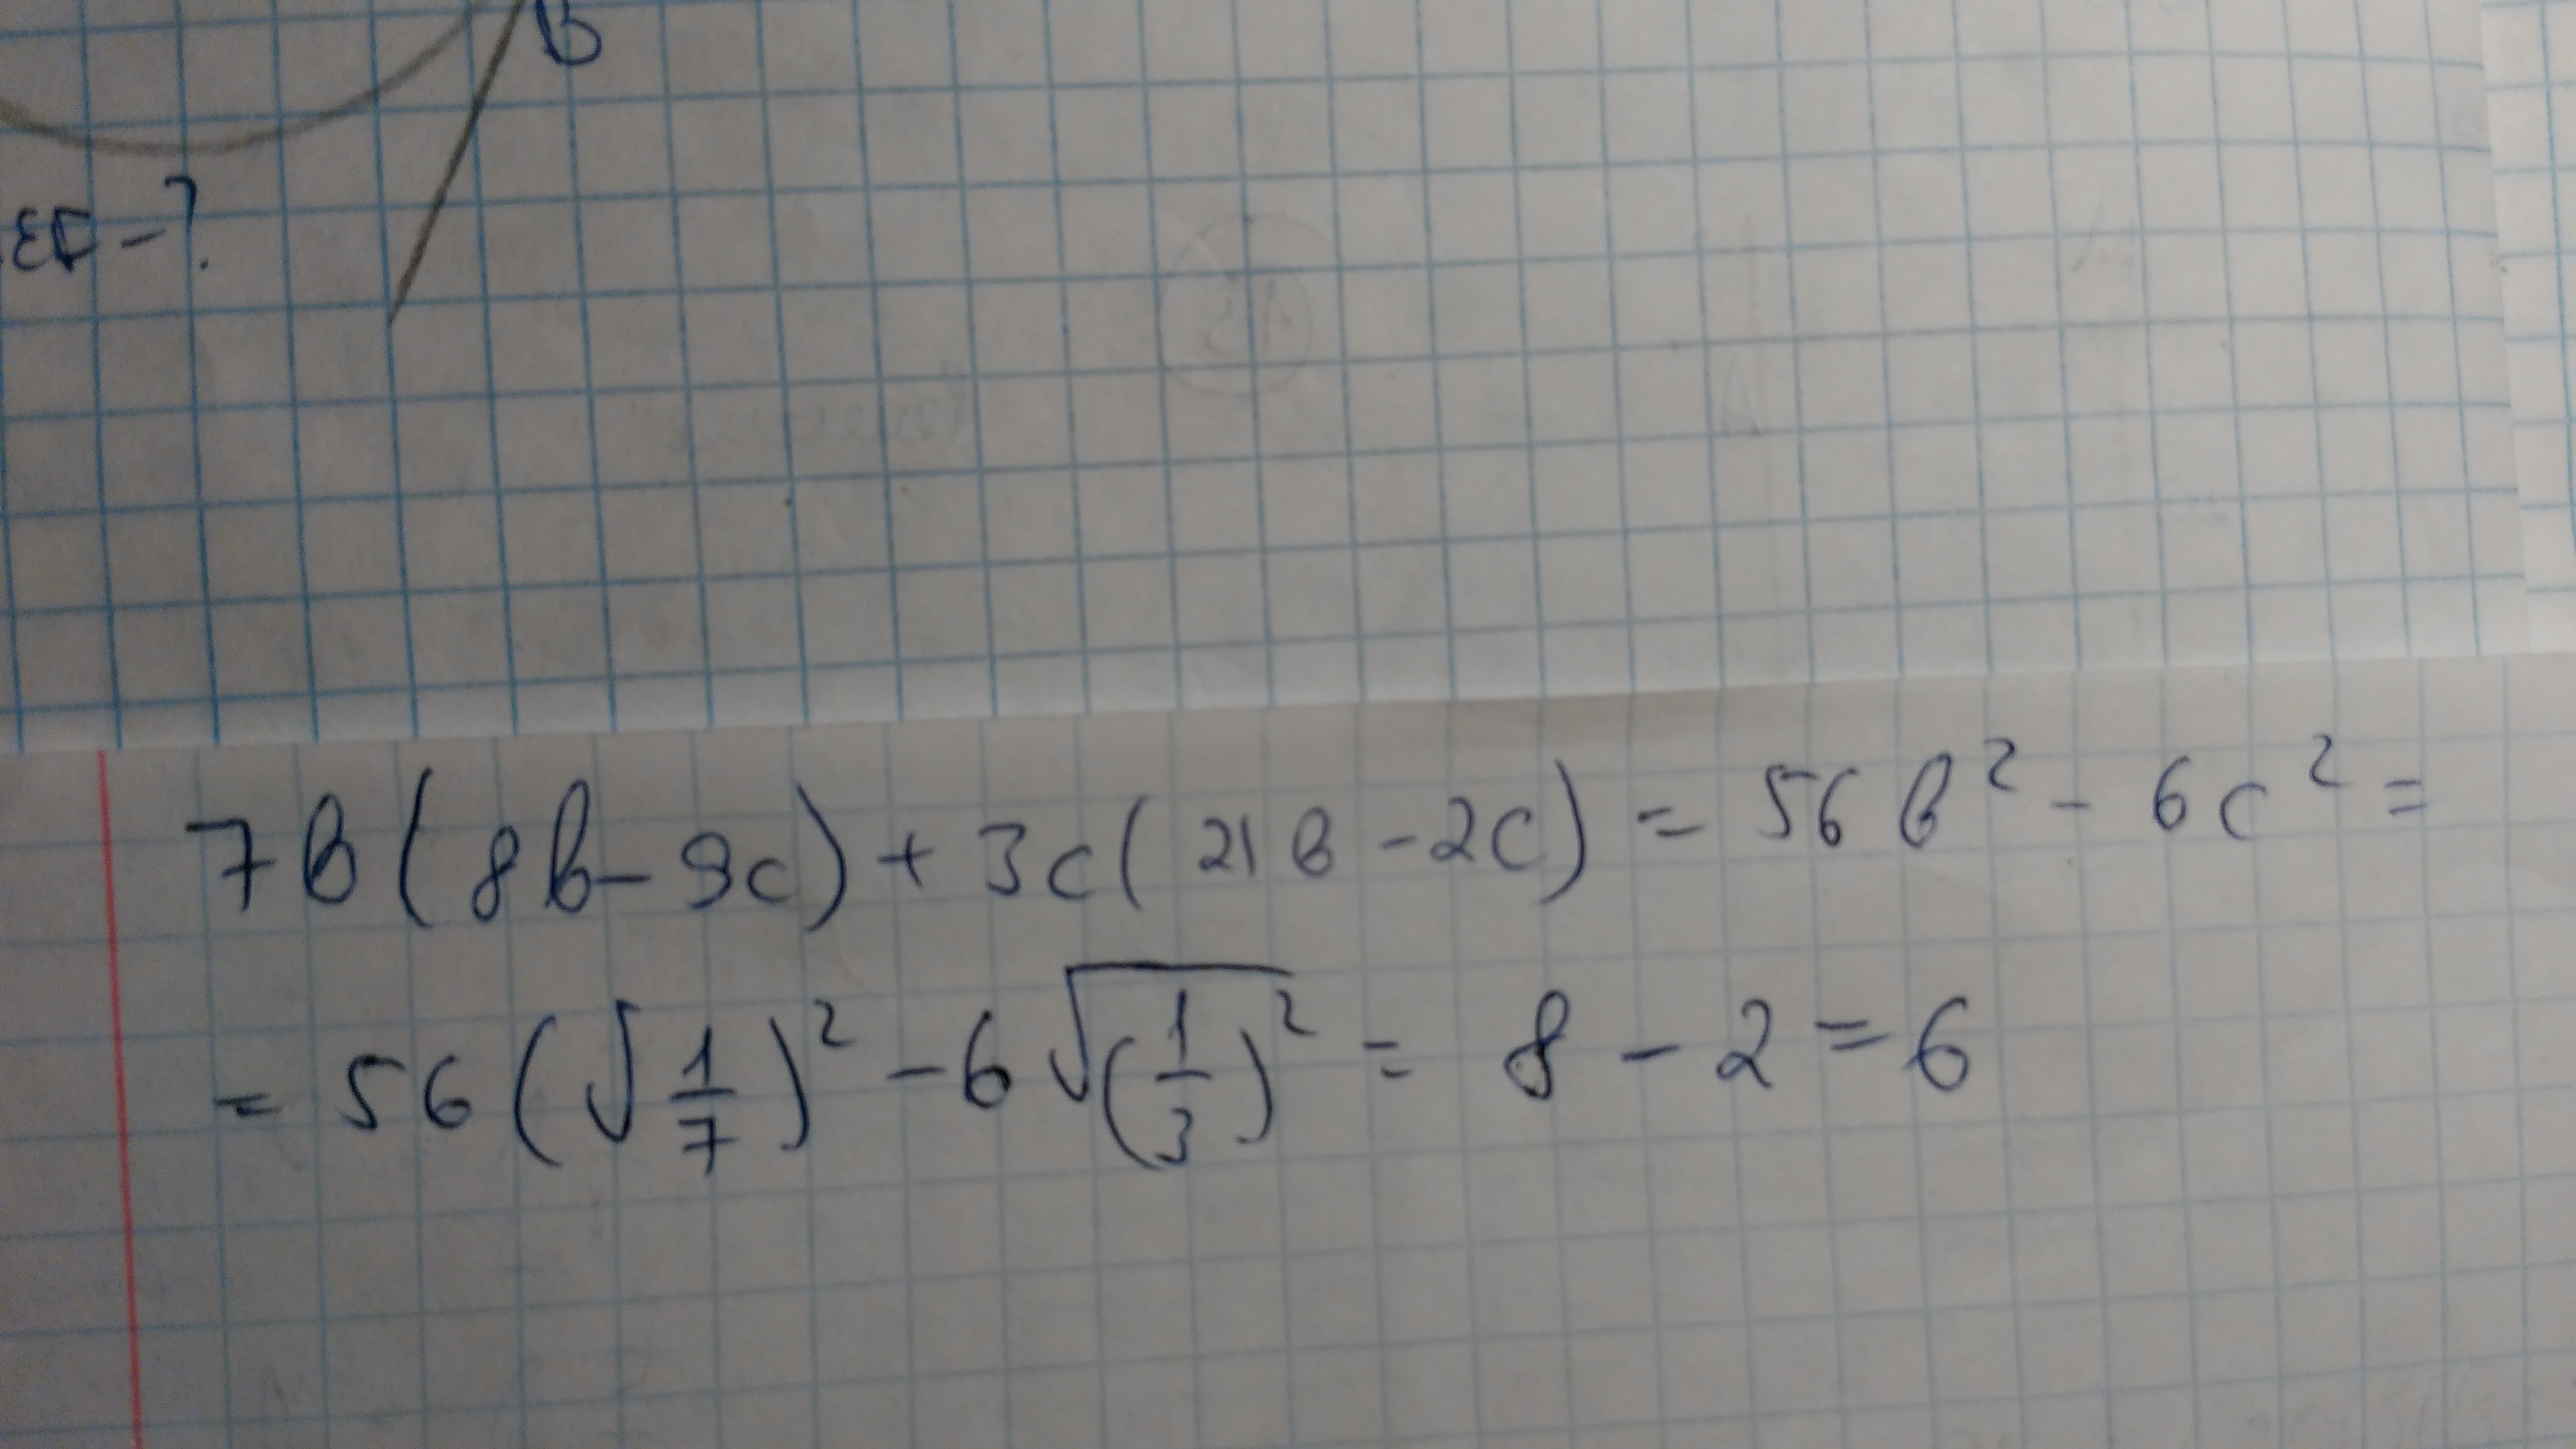 B
EF - ?
7в(8в-9c) + 3c(21в-2c) = 56в² - 6c² =
= 56(√1/7)² - 6√(1/3)² = 8 - 2 = 6